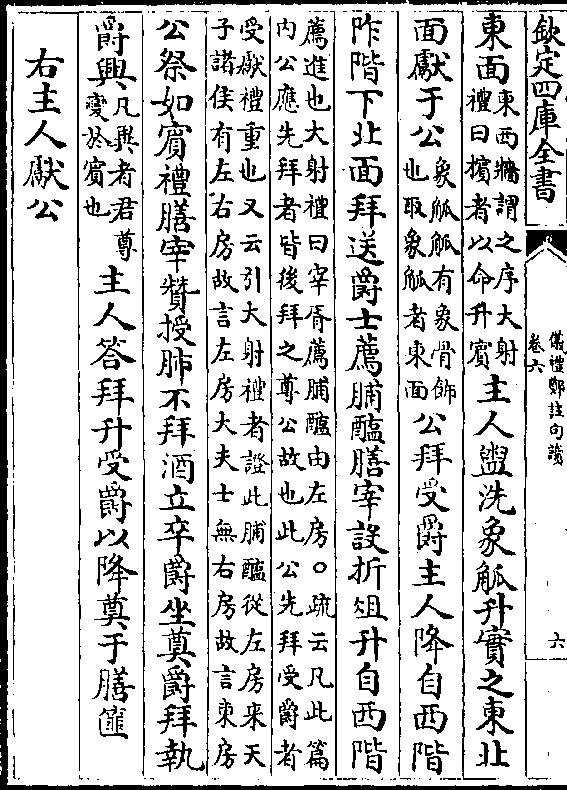 欽定四庫全書
儀禮鄭註句讀
卷六
六
東面東西牆謂之序大射
禮曰擯者以命升賓主人盥洗象觚升實之東北
面獻于公象觚觚有象骨飾
也取象觚者東面公拜受爵主人降自西階
阼階下北面拜送爵士薦脯醢膳宰設折俎升自西階
薦進也大射禮曰宰胥薦脯醢由左房○疏云凡此篇
内公應先拜者皆後拜之尊公故也此公先拜受爵者
受獻禮重也又云引大射禮者證此脯醢從左房来天
子諸侯有左右房故言左房大夫士無右房故言東房
公祭如賓禮膳宰贊授肺不拜酒立卒爵坐奠爵拜執
爵興凡異者君尊
變於賓也主人答拜升受爵以降奠于膳篚
右主人獻公